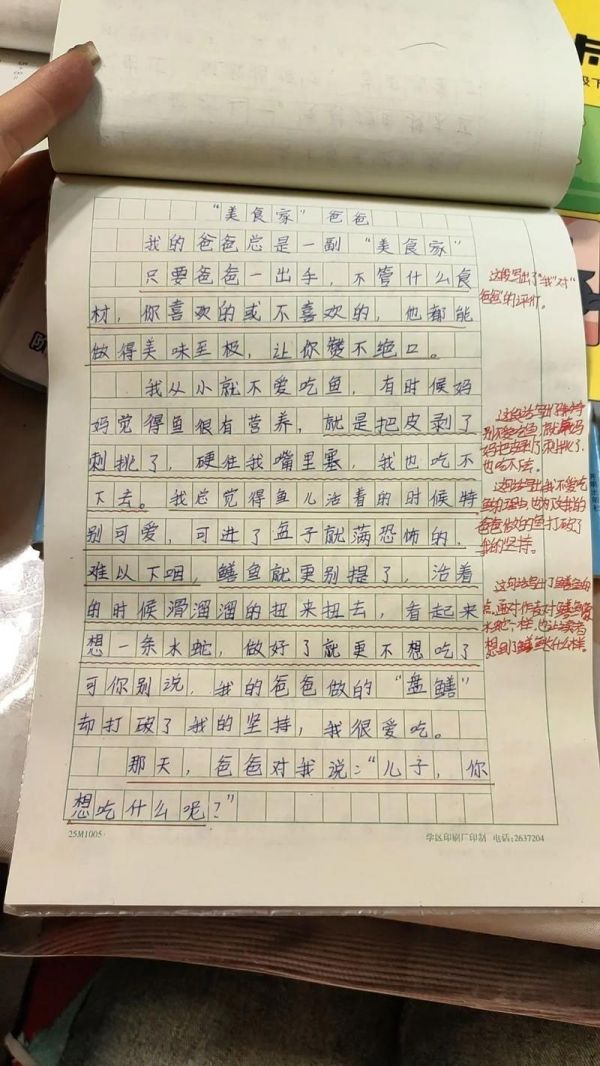 "美食家"爸爸
我的爸爸总是一副"美食家"
只要爸爸一出手，不管什么食
材，你喜欢的或不喜欢的，他都能
做得美味至极，让你赞不绝口。
我从小就不爱吃鱼，有时候妈
妈觉得鱼很有营养，就是把皮剥了
刺挑了，硬往我嘴里塞，我也吃不
下去。我总觉得鱼儿活着的时候特
别可爱，可进了盘子就满恐怖的，
难以下咽，鳝鱼就更别提了，活着
的时候滑溜溜的扭来扭去，看起来
想一条水蛇，做好了就更不想吃了
可你别说，我的爸爸做的"盘鳝"
却打破了我的坚持，我很爱吃。
那天，爸爸对我说："儿子，你
想吃什么呢？"
这段写出了"我"对"
爸爸"的评价。
别不爱吃鱼，就算妈
妈把皮剥了刺挑了，
也吃不下去。
这句话写出我不爱吃
我的坚持。
这句话写出了鳝鱼的
25M1005
学区印刷厂印制 电话:2637204